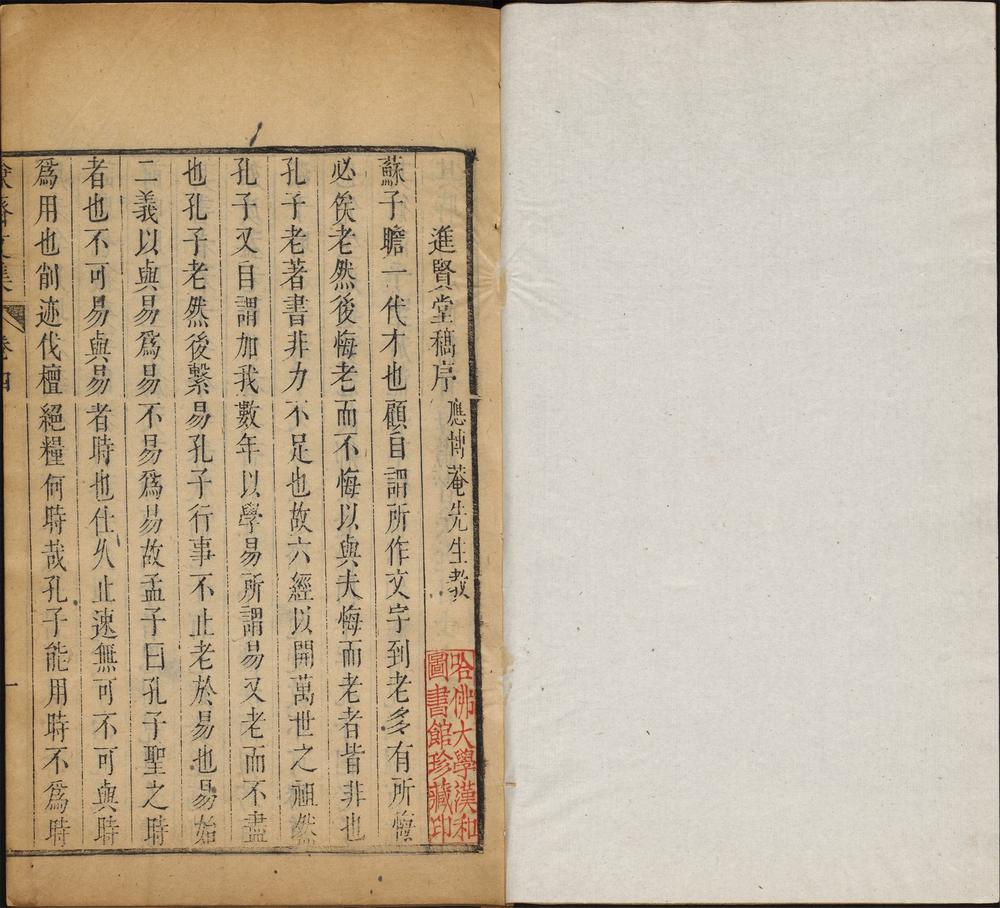 進賢堂稿序 應博菴先生教
蘇子瞻一代才也顧自謂所作文字到老多有所悔
必俟老然後悔老而不悔以與夫悔而老者皆非也
孔子老著書非力不足也故六經以開萬世之祖然
孔子又自謂加我數年以學易所謂易又老而不盡
也孔子老然後繫易孔子行事不止老於易也易始
二義以與易爲易不易爲易故孟子曰孔子聖之時
者也不可易與易者時也仕久止速無可不可與時
爲用也削迹伐檀絕糧何時哉孔子能用時不爲時
齋文集 卷四 一
哈佛大學漢和
圖書館珍藏印